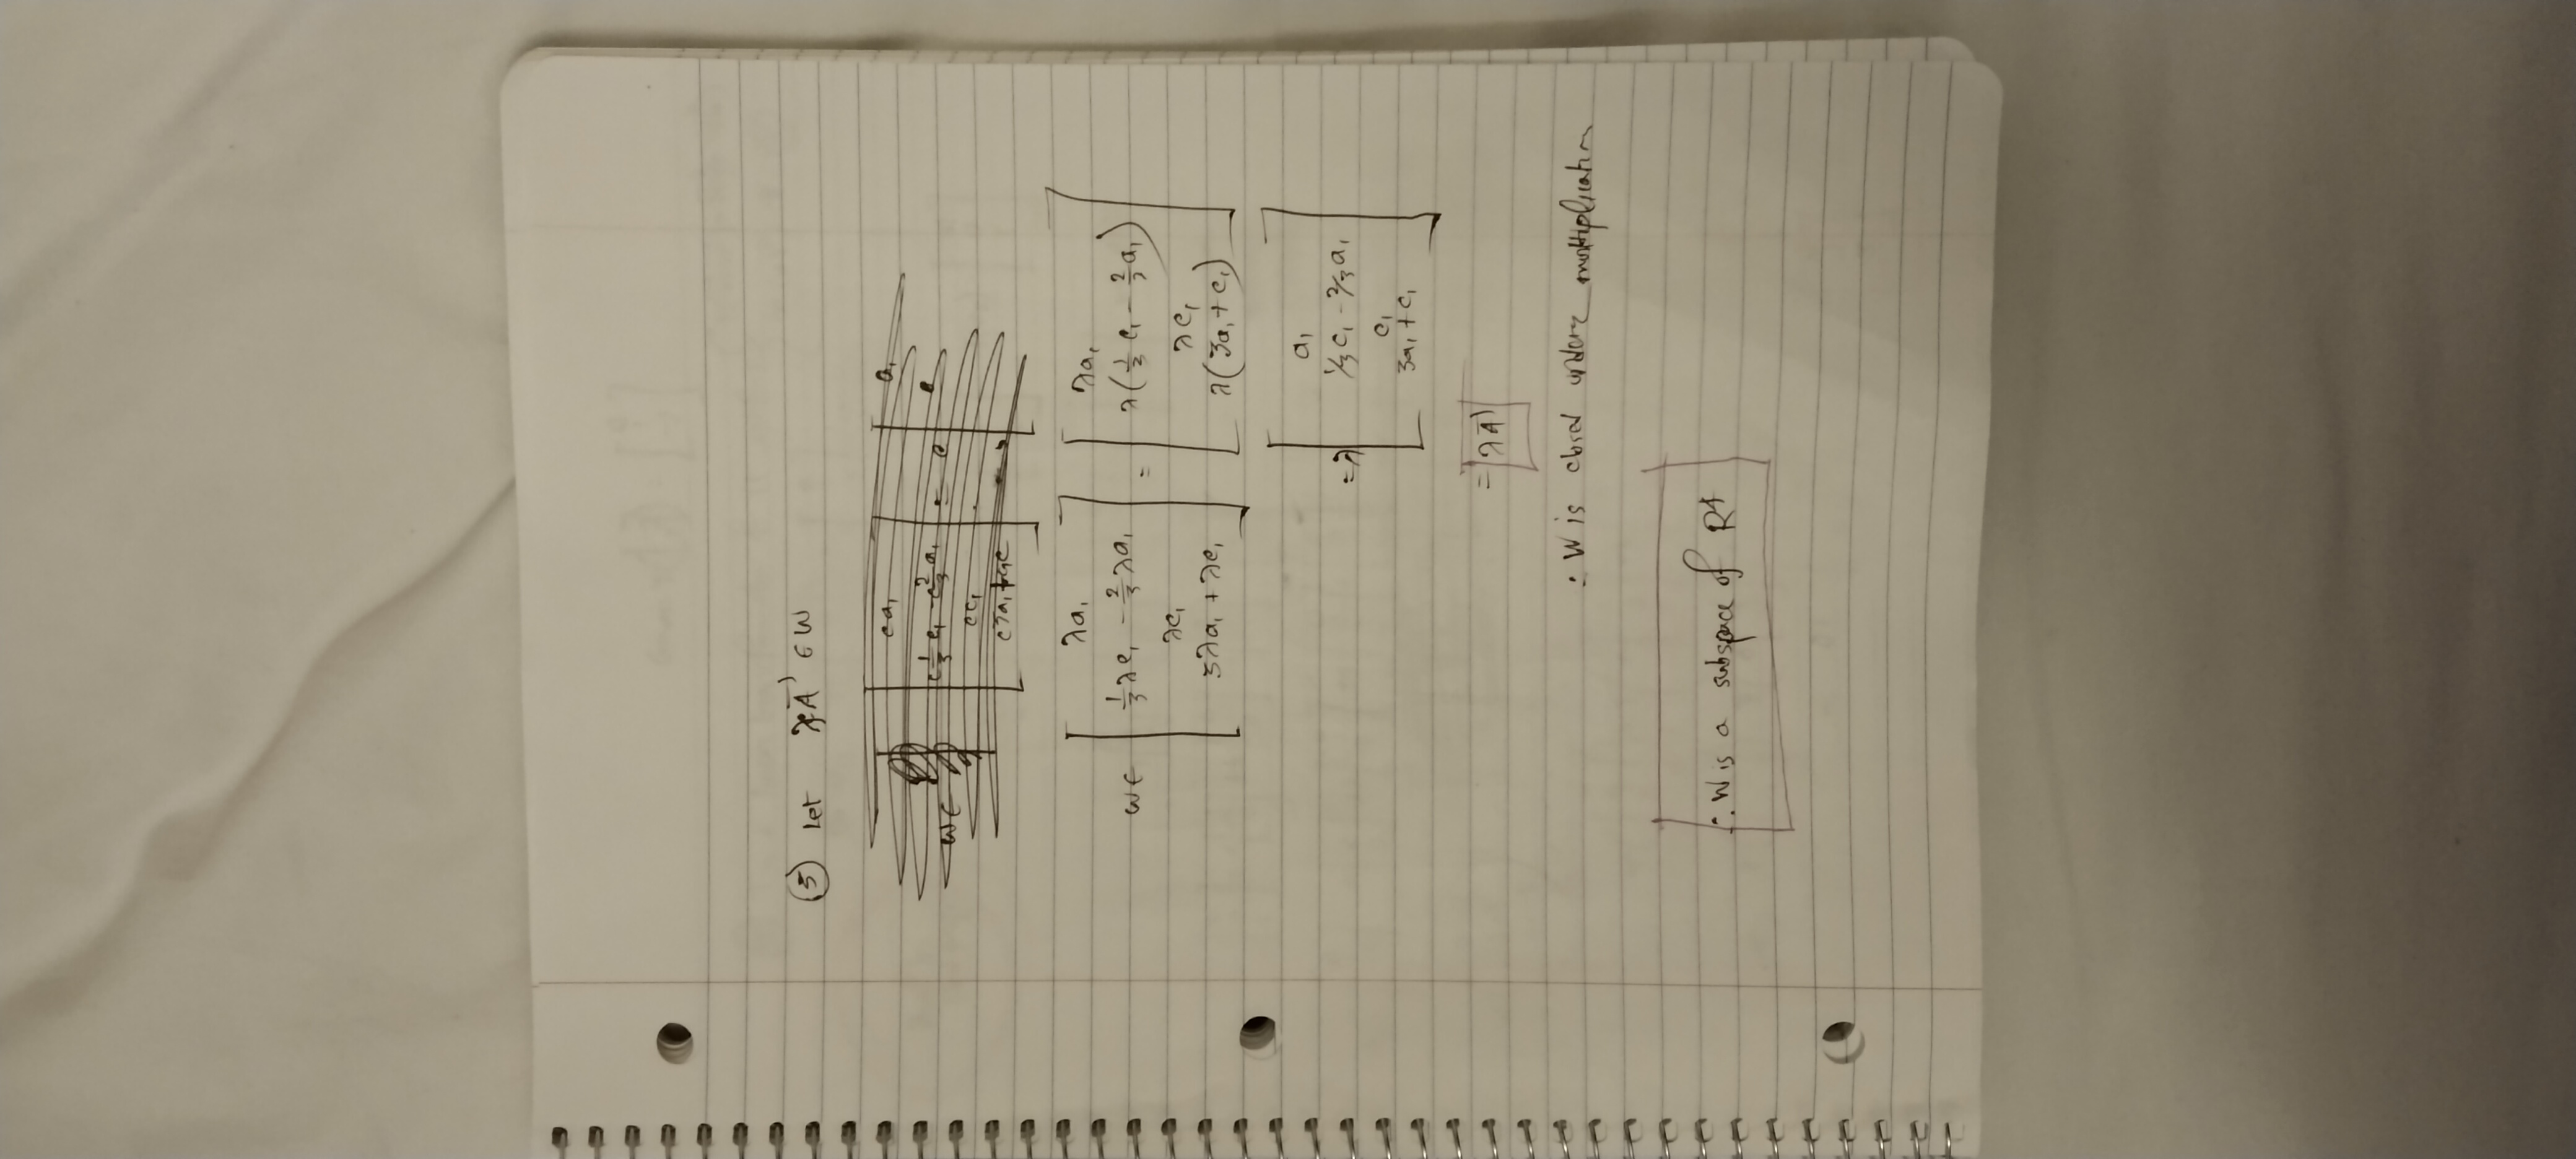 ⑤ Let λA⃗ ∈ W
w∈ [ λa₁ ] = [ λa₁ ]
[ 1/3 λc₁ - 2/3 λa₁ ] [ λ(1/3 c₁ - 2/3 a₁) ]
[ λc₁ ] [ λc₁ ]
[ 3λa₁ + λc₁ ] [ λ(3a₁ + c₁) ]
= λ [ a₁ ]
[ 1/3 c₁ - 2/3 a₁ ]
[ c₁ ]
[ 3a₁ + c₁ ]
= λA⃗
∴ W is closed under multiplication
∴ W is a subspace of R⁴